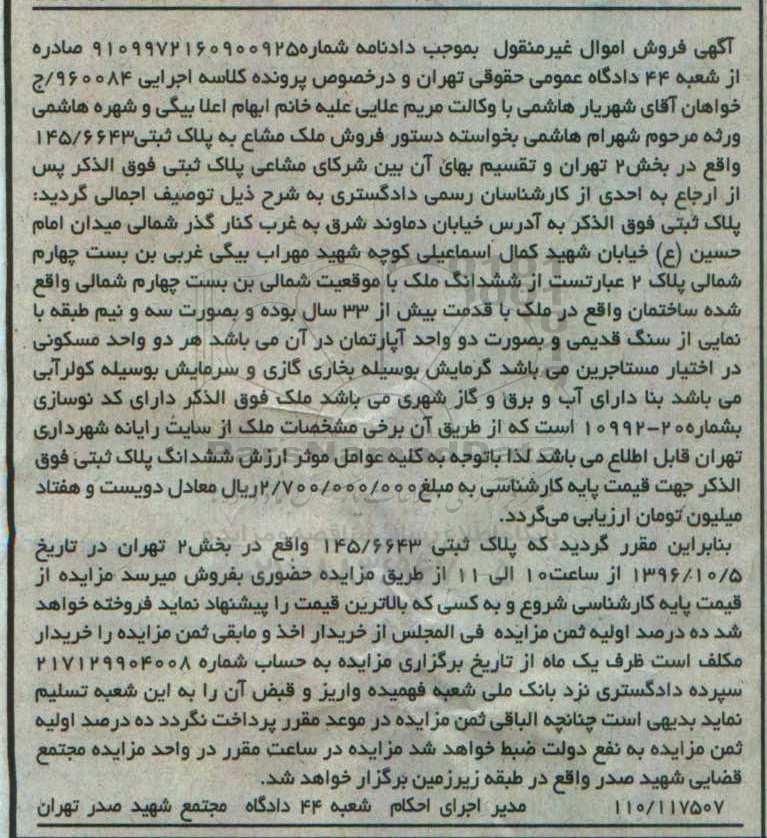 آگهی فروش اموال غیرمنقول بموجب دادنامه شماره۹۱۰۹۹۷۲۱۶۰۹۰۰۹۲۵ صادره
از شعبه ۴۴ دادگاه عمومی حقوقی تهران و درخصوص پرونده کلاسه اجرایی ۹۶۰۰۸۴/ج
خواهان آقای شهریار هاشمی با وکالت مریم علایی علیه خانم ابهام اعلا بیگی و شهره هاشمی
ورثه مرحوم شهرام هاشمی بخواسته دستور فروش ملک مشاع به پلاک ثبتی۱۴۵/۶۶۴۳
واقع در بخش۲ تهران و تقسیم بهای آن بین شرکای مشاعی پلاک ثبتی فوق الذکر پس
از ارجاع به احدی از کارشناسان رسمی دادگستری به شرح ذیل توصیف اجمالی گردید:
پلاک ثبتی فوق الذکر به آدرس خیابان دماوند شرق به غرب کنار گذر شمالی میدان امام
حسین (ع) خیابان شهید کمال اسماعیلی کوچه شهید مهراب بیگی غربی بن بست چهارم
شمالی پلاک ۲ عبارتست از ششدانگ ملک با موقعیت شمالی بن بست چهارم شمالی واقع
شده ساختمان واقع در ملک با قدمت بیش از ۳۳ سال بوده و بصورت سه و نیم طبقه با
نمایی از سنگ قدیمی و بصورت دو واحد آپارتمان در آن می باشد هر دو واحد مسکونی
در اختیار مستاجرین می باشد گرمایش بوسیله بخاری گازی و سرمایش بوسیله کولرآبی
می باشد بنا دارای آب و برق و گاز شهری می باشد ملک فوق الذکر دارای کد نوسازی
بشماره۲۰-۱۰۹۹۲ است که از طریق آن برخی مشخصات ملک از سایت رایانه شهرداری
تهران قابل اطلاع می باشد لذا باتوجه به کلیه عوامل موثر ارزش ششدانگ پلاک ثبتی فوق
الذکر جهت قیمت پایه کارشناسی به مبلغ۲/۷۰۰/۰۰۰/۰۰۰ریال معادل دویست و هفتاد
میلیون تومان ارزیابی می‌گردد.
بنابراین مقرر گردید که پلاک ثبتی ۱۴۵/۶۶۴۳ واقع در بخش۲ تهران در تاریخ
۱۳۹۶/۱۰/۵ از ساعت۱۰ الی ۱۱ از طریق مزایده حضوری بفروش میرسد مزایده از
قیمت پایه کارشناسی شروع و به کسی که بالاترین قیمت را پیشنهاد نماید فروخته خواهد
شد ده درصد اولیه ثمن مزایده فی المجلس از خریدار اخذ و مابقی ثمن مزایده را خریدار
مکلف است ظرف یک ماه از تاریخ برگزاری مزایده به حساب شماره ۲۱۷۱۲۹۹۰۴۰۰۸
سپرده دادگستری نزد بانک ملی شعبه فهمیده واریز و قبض آن را به این شعبه تسلیم
نماید بدیهی است چنانچه الباقی ثمن مزایده در موعد مقرر پرداخت نگردد ده درصد اولیه
ثمن مزایده به نفع دولت ضبط خواهد شد مزایده در ساعت مقرر در واحد مزایده مجتمع
قضایی شهید صدر واقع در طبقه زیرزمین برگزار خواهد شد.
۱۱۰/۱۱۷۵۰۷ مدیر اجرای احکام شعبه ۴۴ دادگاه مجتمع شهید صدر تهران